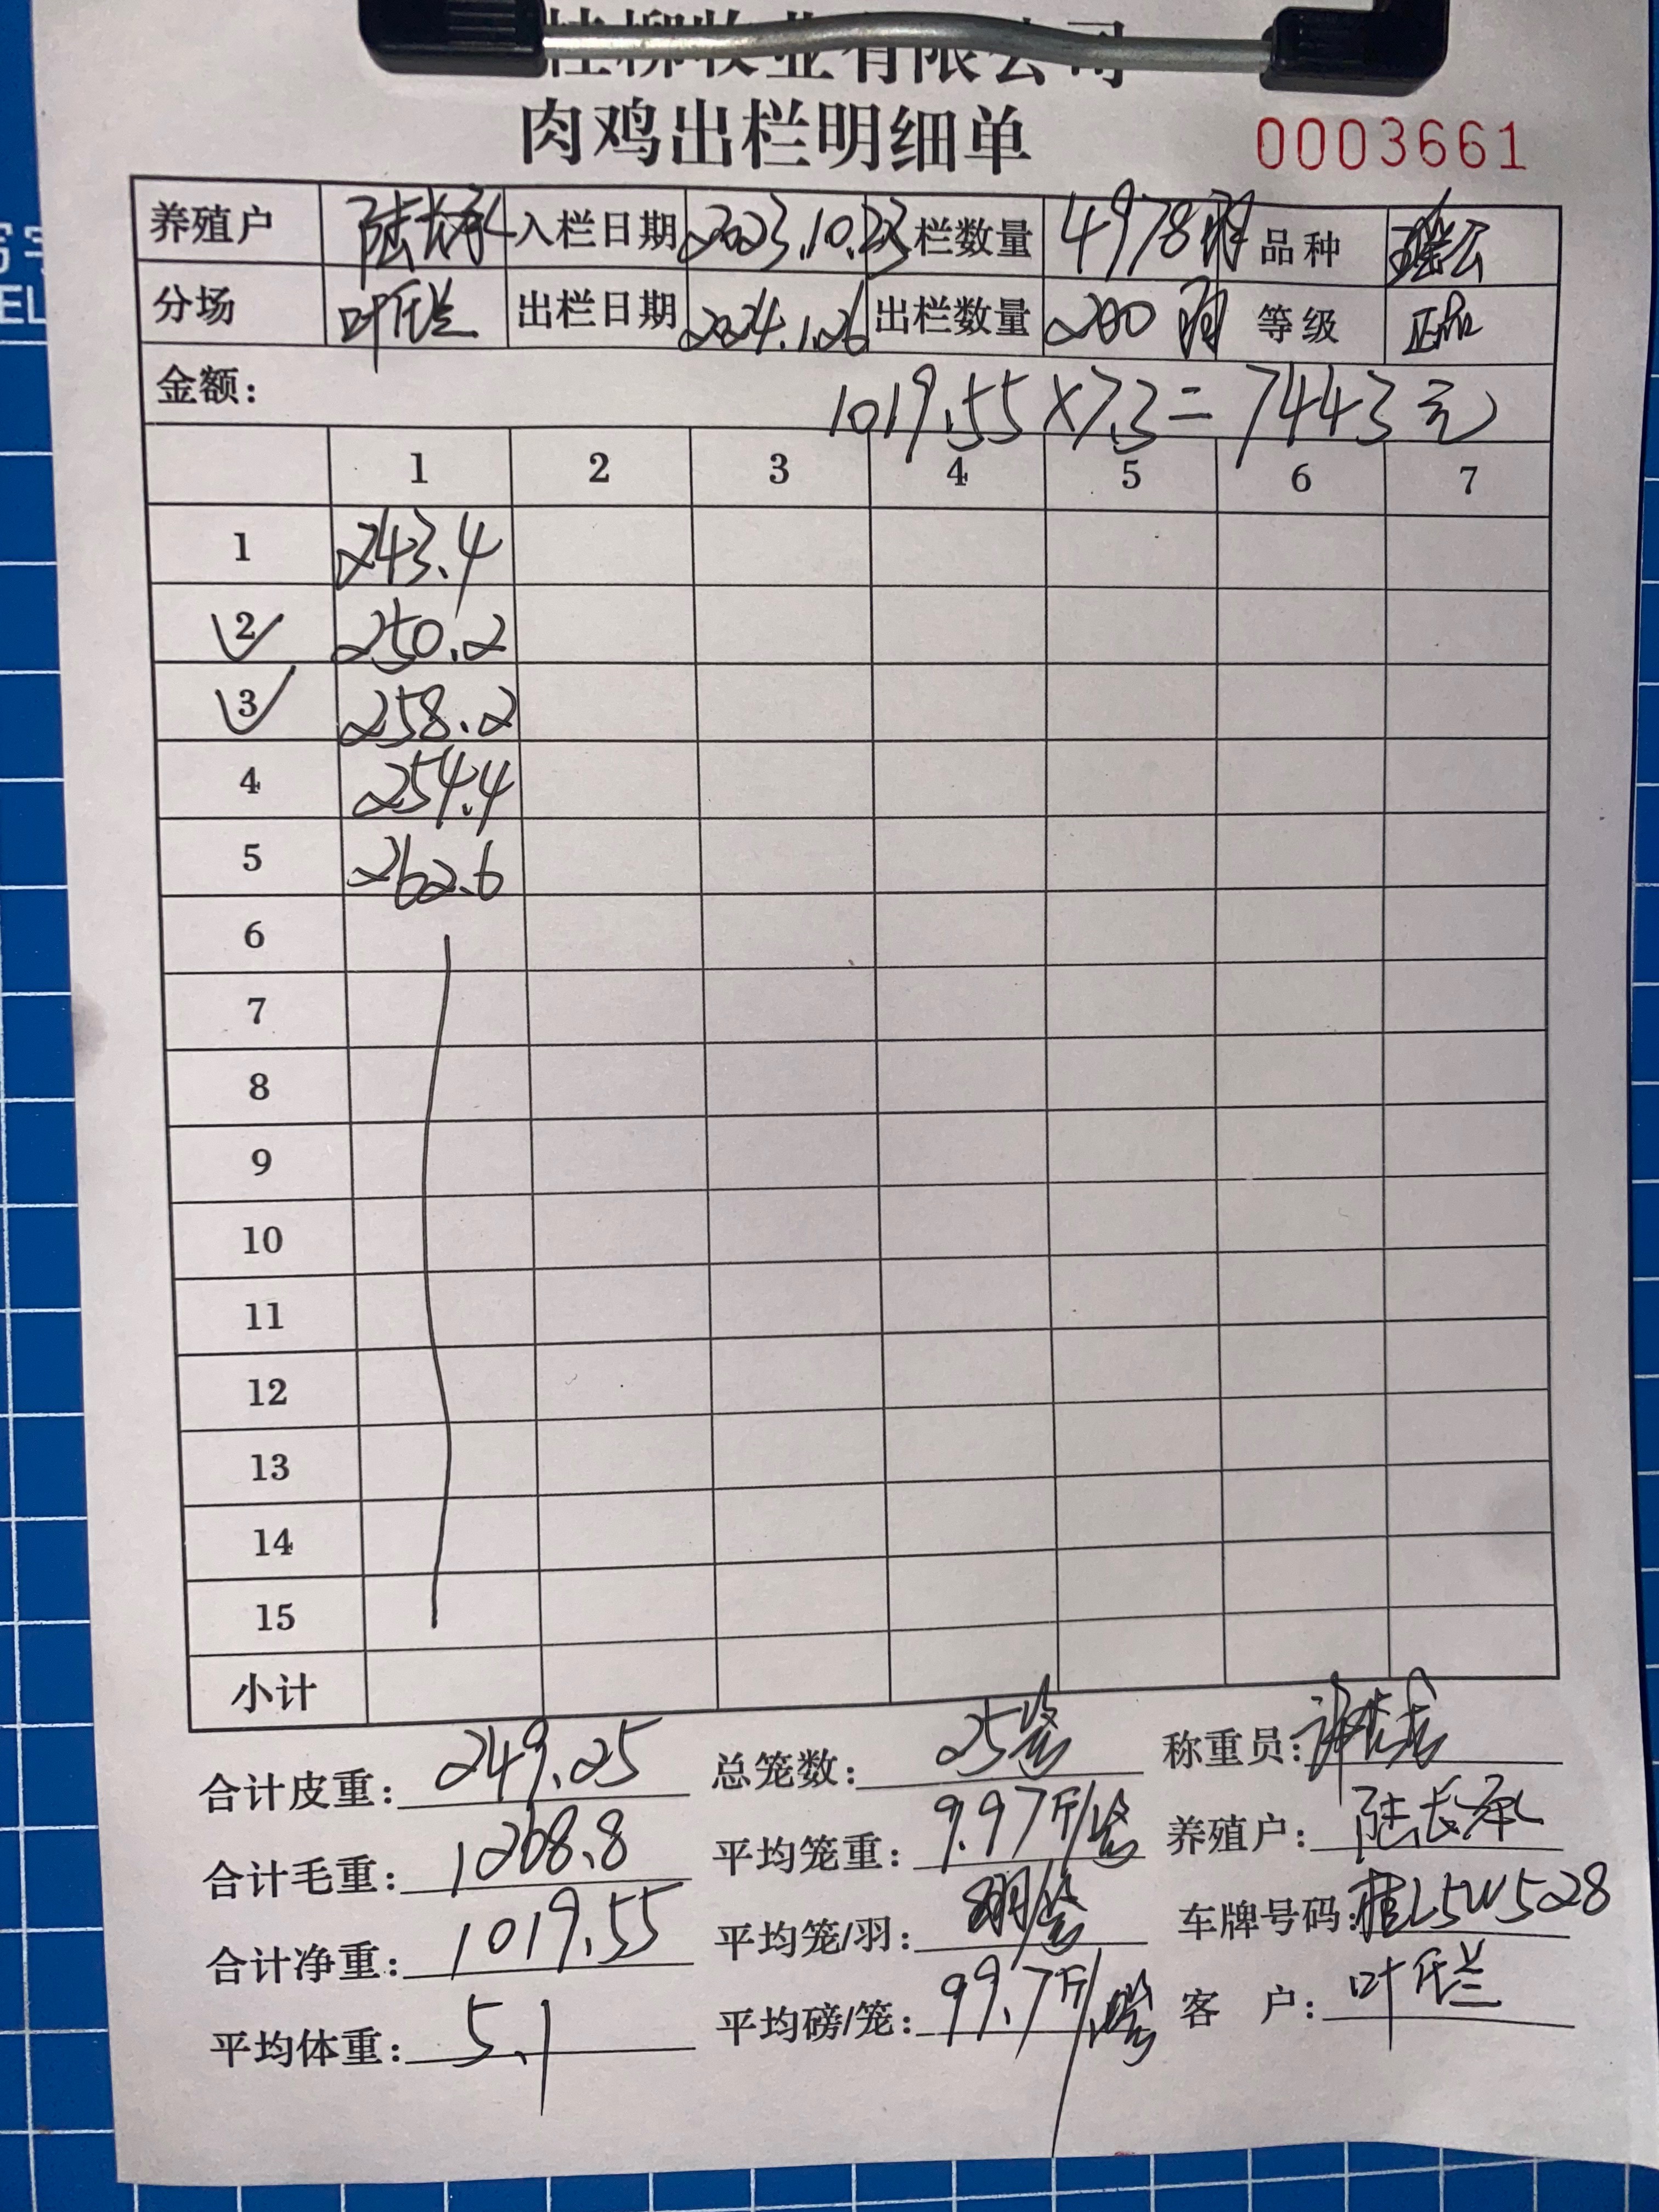 桂柳牧业有限公司
肉鸡出栏明细单 0003661
养殖户 陆长承 入栏日期 2023.10.23 栏数量 4978羽 品种 瑶公
分场 叶任兰 出栏日期 2024.1.26 出栏数量 200羽 等级 正品
金额: 1019.55×7.3=7443元
1 2 3 4 5 6 7
1 243.4
2 250.2
3 258.2
4 254.4
5 262.6
6
7
8
9
10
11
12
13
14
15
小计
合计皮重: 249.25 总笼数: 25笼 称重员:
合计毛重: 1268.8 平均笼重: 9.97斤/笼 养殖户: 陆长承
合计净重: 1019.55 平均笼/羽: 8羽/笼 车牌号码: 桂L5W528
平均体重: 5.1 平均磅/笼: 99.7斤/笼 客 户: 叶任兰